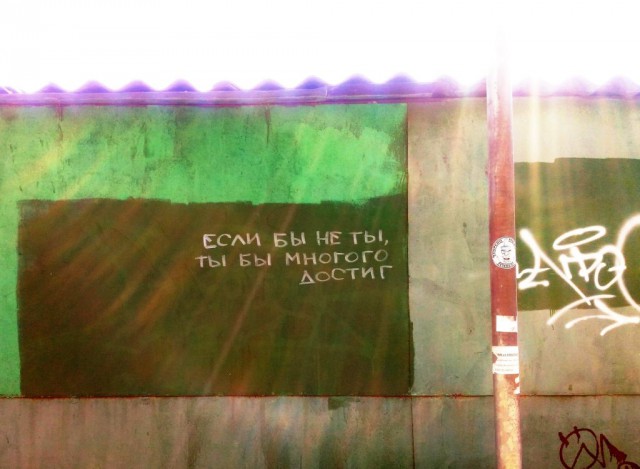 ЕСЛИ БЫ НЕ ТЫ,
ТЫ БЫ МНОГОГО
ДОСТИГ